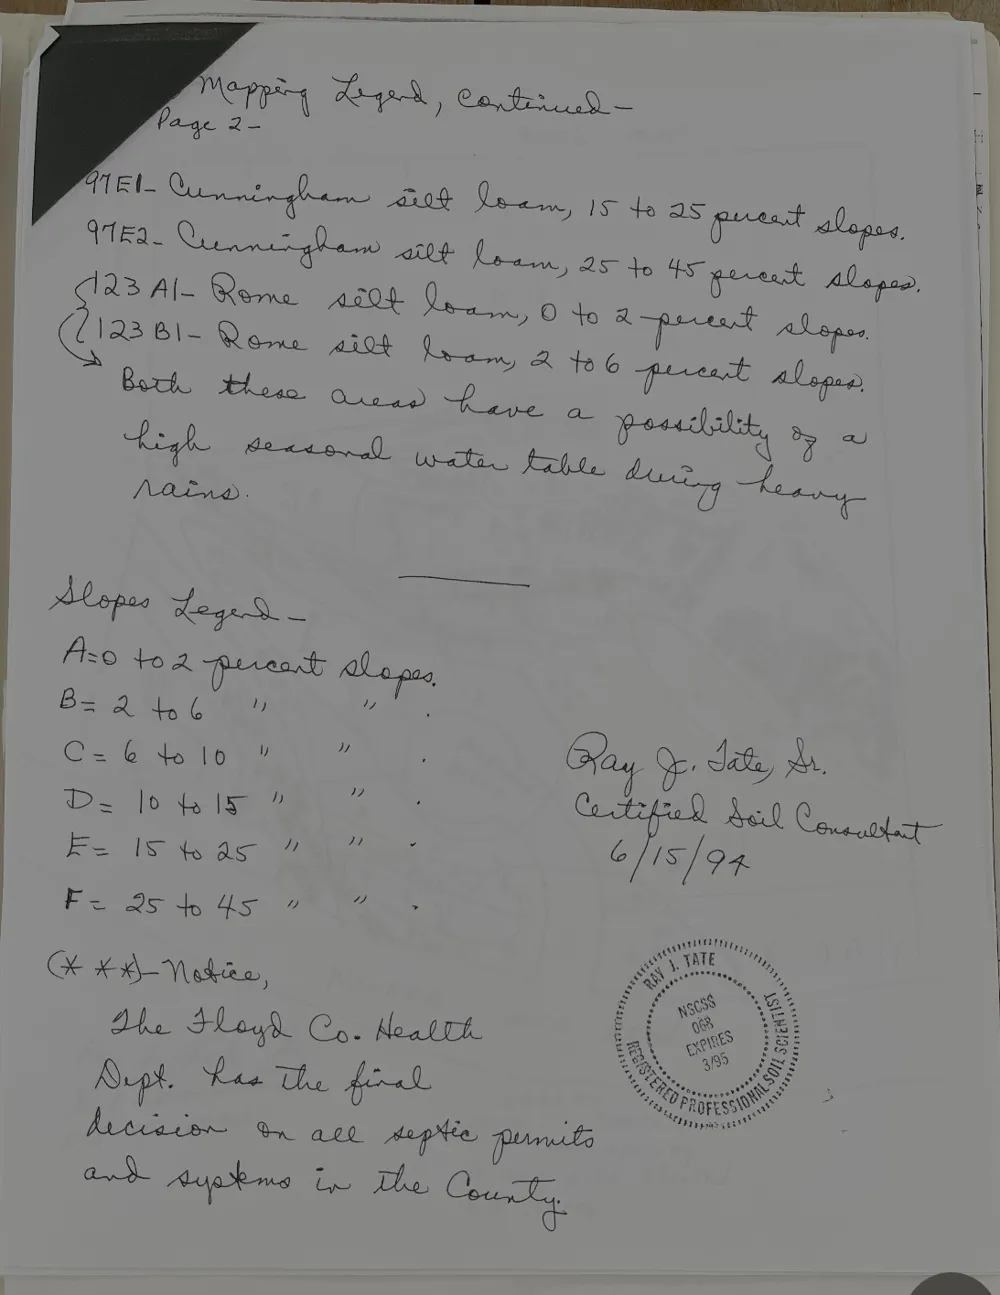 Mapping Legend, continued-
Page 2-
97E1- Cunningham silt loam, 15 to 25 percent slopes.
97E2- Cunningham silt loam, 25 to 45 percent slopes.
123 A1- Rome silt loam, 0 to 2 percent slopes.
123 B1- Rome silt loam, 2 to 6 percent slopes.
Both these areas have a possibility of a
high seasonal water table during heavy
rains.
Slopes Legend-
A=0 to 2 percent slopes.
B= 2 to 6 " " .
C= 6 to 10 " " .
D= 10 to 15 " " .
E= 15 to 25 " " .
F= 25 to 45 " " .
Ray J. Tate, Sr.
Certified Soil Consultant
6/15/94
(* * *)-Notice,
The Floyd Co. Health
Dept. has the final
decision on all septic permits
and systems in the County.
RAY J. TATE
REGISTERED PROFESSIONAL SOIL SCIENTIST
NSCSS
068
EXPIRES
3/95